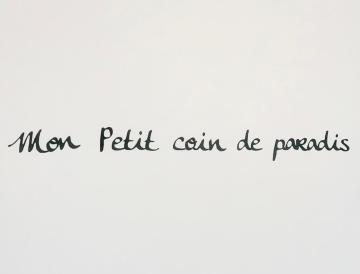 Mon Petit coin de paradis